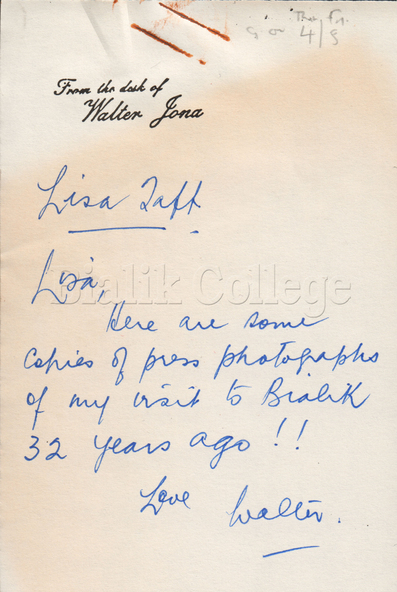 4/9
From the desk of
Walter Jona
Lisa Taft
Bialik College
Lisa,
Here are some
copies of press photographs
of my visit to Bialik
32 years ago!!
Love Walter.